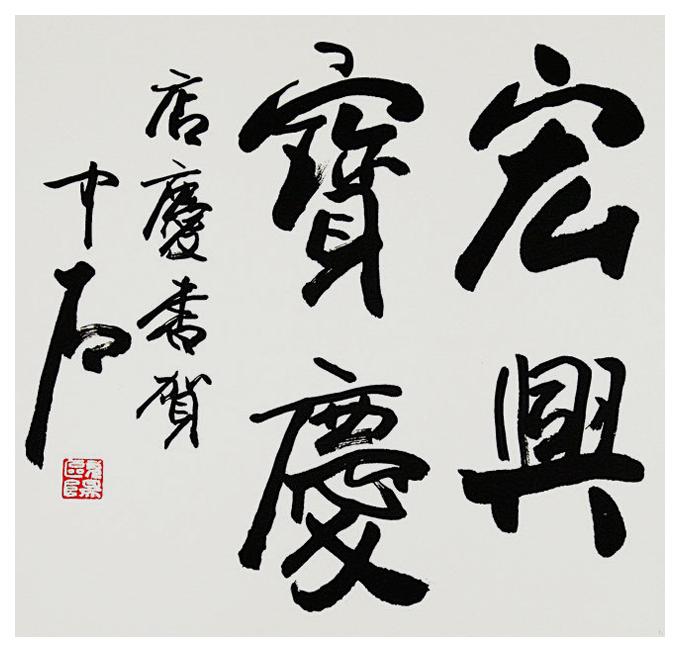 宏興
寶慶
店慶書賀
中石